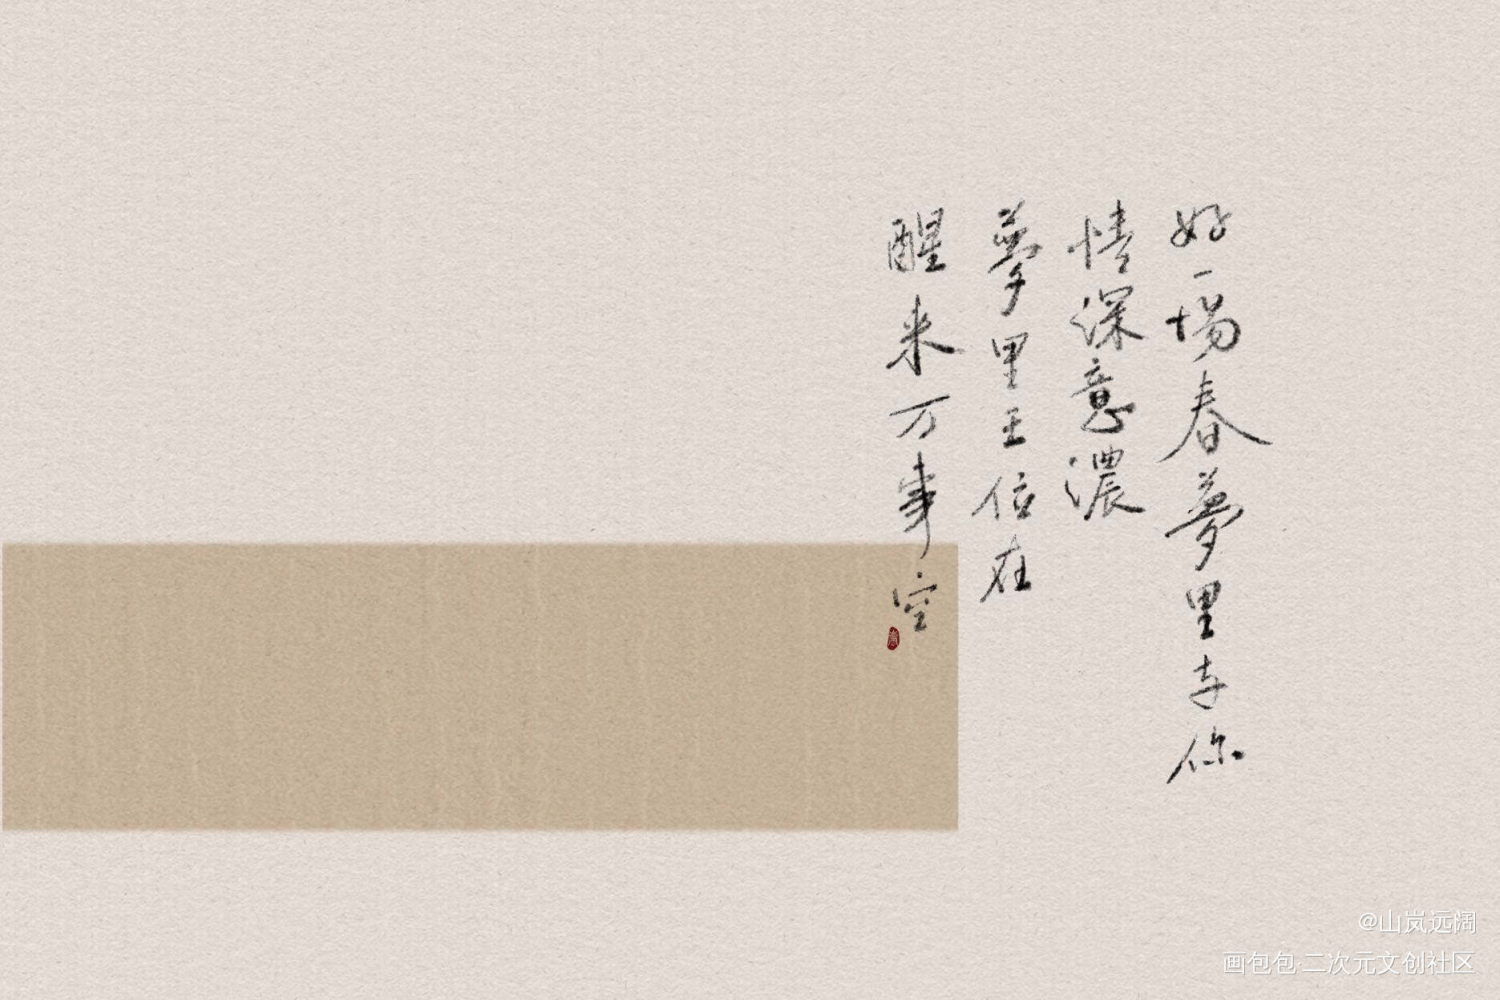 好一場春夢里与你
情深意濃
夢里王位在
醒来万事空
@山岚远阔
画包包·二次元文创社区